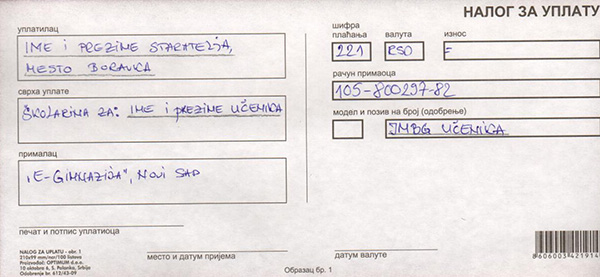 НАЛОГ ЗА УПЛАТУ
уплатилац
IME i PREZINE STARATEJA,
MESTO BORAVKA
сврха уплате
ŠKOLARINA ZA: IME i PREZINE UČENIKA
прималац
„E-GIMNAZIJA", NOVI SAD
шифра плаћања
221
валута
RSD
износ
рачун примаоца
105-800297-82
модел и позив на број (одобрење)
JMBG UČENIKA
печат и потпис уплатиоца
место и датум пријема
датум валуте
NALOG ZA UPLATU - obr. 1
210x99 mm/nor/100 listova
Proizvođač: OPTIMUM d.o.o.
10 oktobra 6, S. Palanka, Srbija
Odobrenje br. 612/43-09
Образац бр. 1
8606003421914